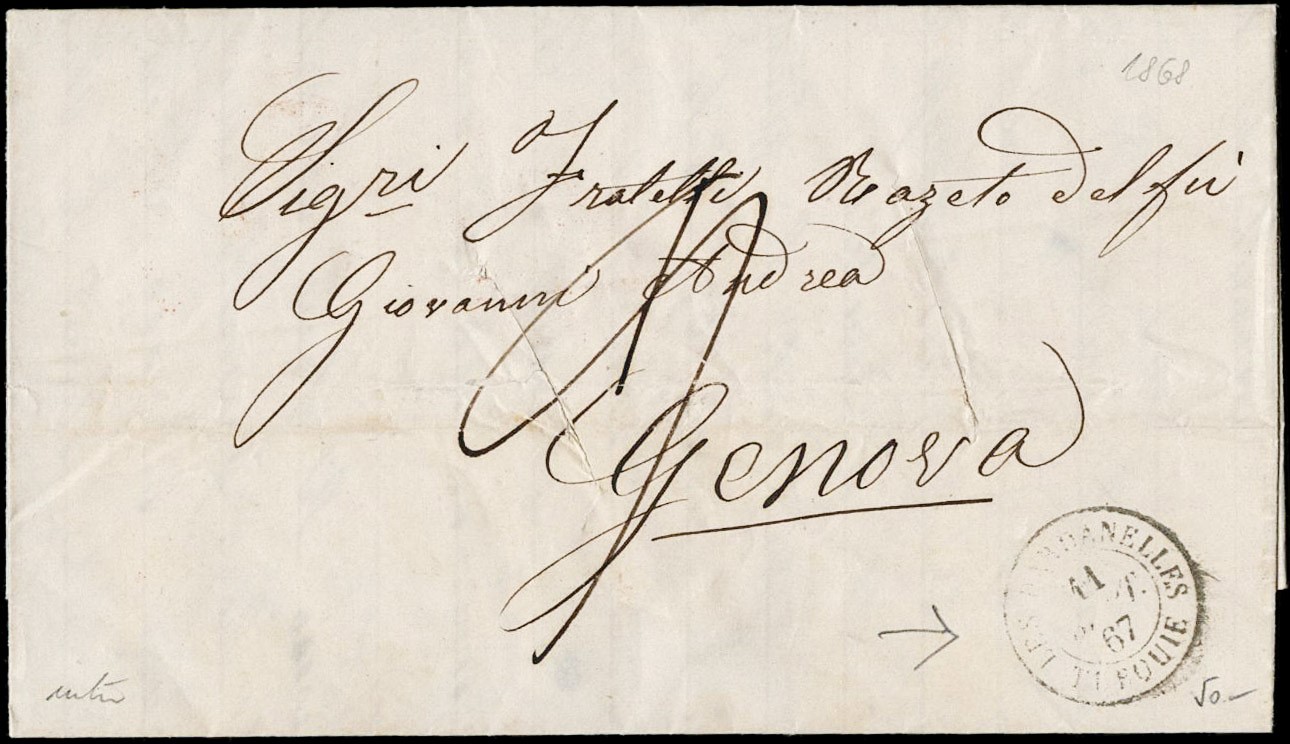 1868
Sigri Fratelli Razeto del fù
Giovanni Andrea
Genova
LES DARDANELLES
11
67
TURQUIE
50–